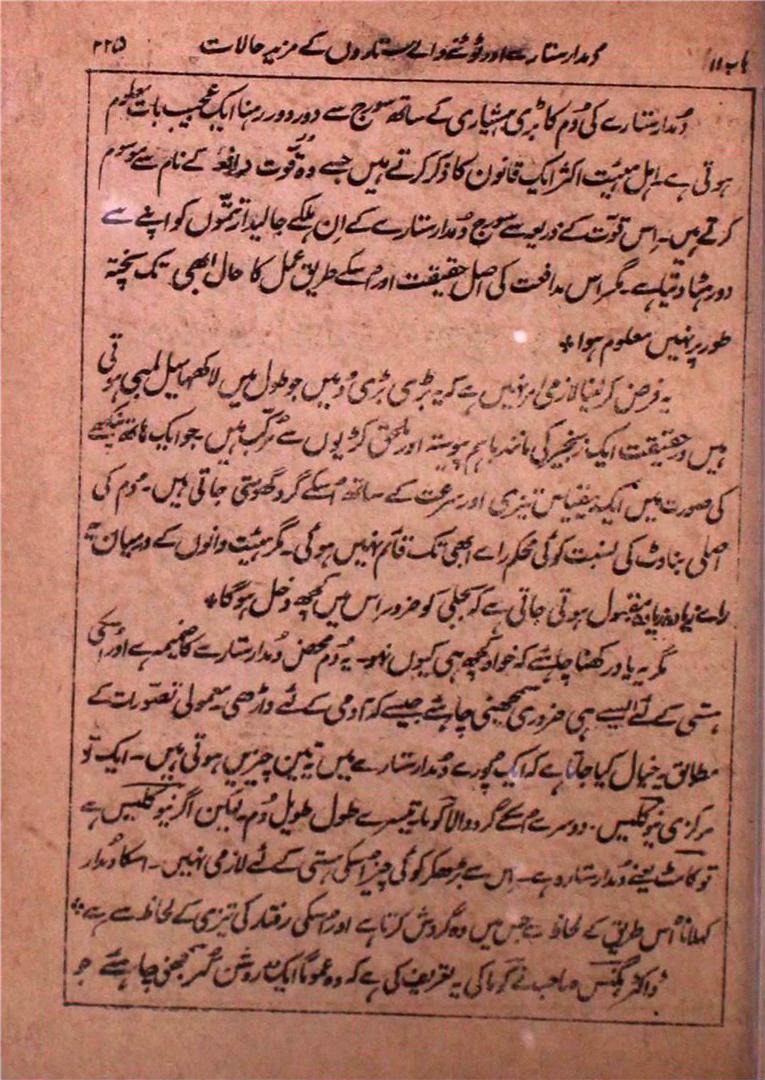 باب ۱۱ دُمدار ستارے اور ٹوٹنے والے ستاروں کے مزید حالات ۲۲۵
دُمدار ستارے کی دُم کا بڑی ہشیاری کے ساتھ سورج سے دور دور رہنا ایک عجیب بات معلوم
ہوتی ہے۔ اہل ہیئت اکثر ایک قانون کا ذکر کرتے ہیں جسے وہ قوّت دافعہ کے نام سے موسوم
کرتے ہیں۔ اِس قوّت کے ذریعہ سے سورج دُمدار ستارے کے اِن ہلکے جالیدار تتموں کو اپنے سے
دور ہٹا دیتا ہے۔ مگر اس مدافعت کی اصل حقیقت اور اُسکے طریق عمل کا حال ابھی تک پختہ
طور پر نہیں معلوم ہوا *
یہ فرض کر لینا لازمی امر نہیں ہے کہ یہ بڑی بڑی دُمیں جو طول میں لاکھہا میل لمبی ہوتی
ہیں درحقیقت ایک زنجیر کی مانند باہم پیوستہ اور ملحق کڑیوں سے مرکّب ہیں۔ جو ایک
کی صورت میں ایک بیقیاس تیزی اور سرعت کے ساتھ اُسکے گرد گھومتی جاتی ہیں۔ دُم کی
اصلی بناوٹ کی نسبت کوئی محکم رائے ابھی تک قائم نہیں ہوئی۔ مگر ہیئت دانوں کے درمیان یہ
رائے زیادہ زیادہ مقبول ہوتی جاتی ہے کہ بجلی کو ضرور اِس میں کچھ دخل ہوگا *
مگر یہ یاد رکھنا چاہئے کہ خواہ کچھ ہی کیوں نہو۔ یہ دُم محض دُمدار ستارے کا ضمیمہ ہے اور اُسکی
ہستی کے لئے ایسے ہی ضروری سمجھنی چاہئے جیسے کہ آدمی کے لئے داڑھی۔ معمولی تصوّرات کے
مطابق یہ خیال کیا جاتا ہے کہ ایک پورے دُمدار ستارے میں یہ تین چیزیں ہوتی ہیں۔ ایک تو
مرکزی نیوکلیس۔ دوسرے اُسکے گرد والا کوما۔ تیسرے طول طویل دُم۔ لیکن اگر نیوکلیس ہے
تو کامٹ یعنے دُمدار ستارہ ہے۔ اِس سے بڑھکر کوئی چیز اُسکی ہستی کے لئے لازمی نہیں۔ اسکا دُمدار
کہلانا اُس طریق کے لحاظ سے جس میں وہ گردش کرتا ہے اور اُسکی رفتار کی تیزی کے لحاظ سے ہے *
ڈاکٹر ہگنس صاحب نے کوما کی یہ تعریف کی ہے کہ وہ عموماً ایک روشن کُہر سمجھنی چاہئے جو